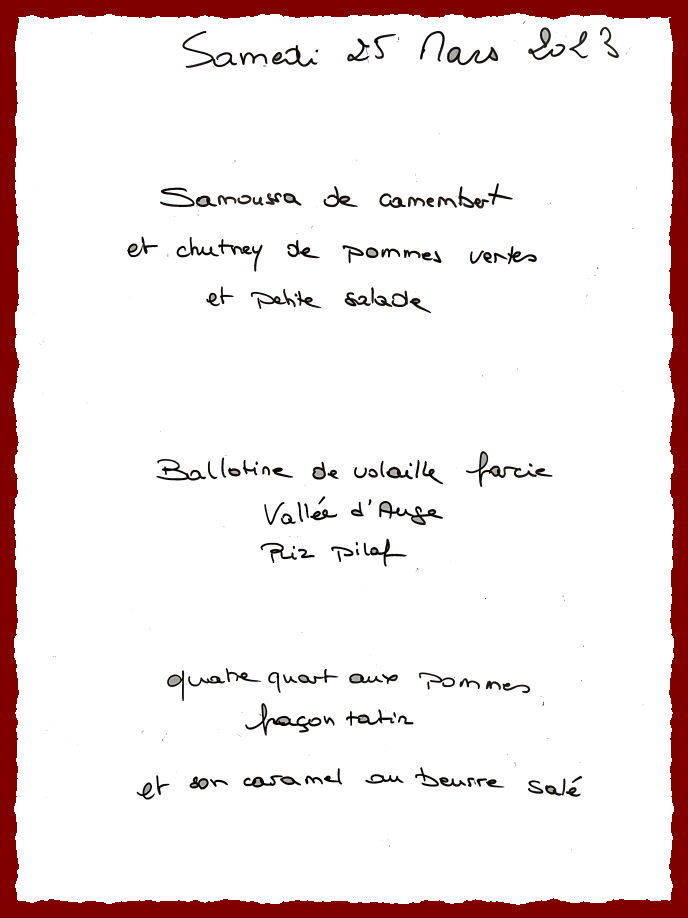 Samedi 25 Mars 2023
Samoussa de camembert
et chutney de pommes vertes
et petite salade
Ballotine de volaille farcie
Vallée d'Auge
Riz pilaf
quatre quart aux pommes
façon tatin
et son caramel au beurre salé